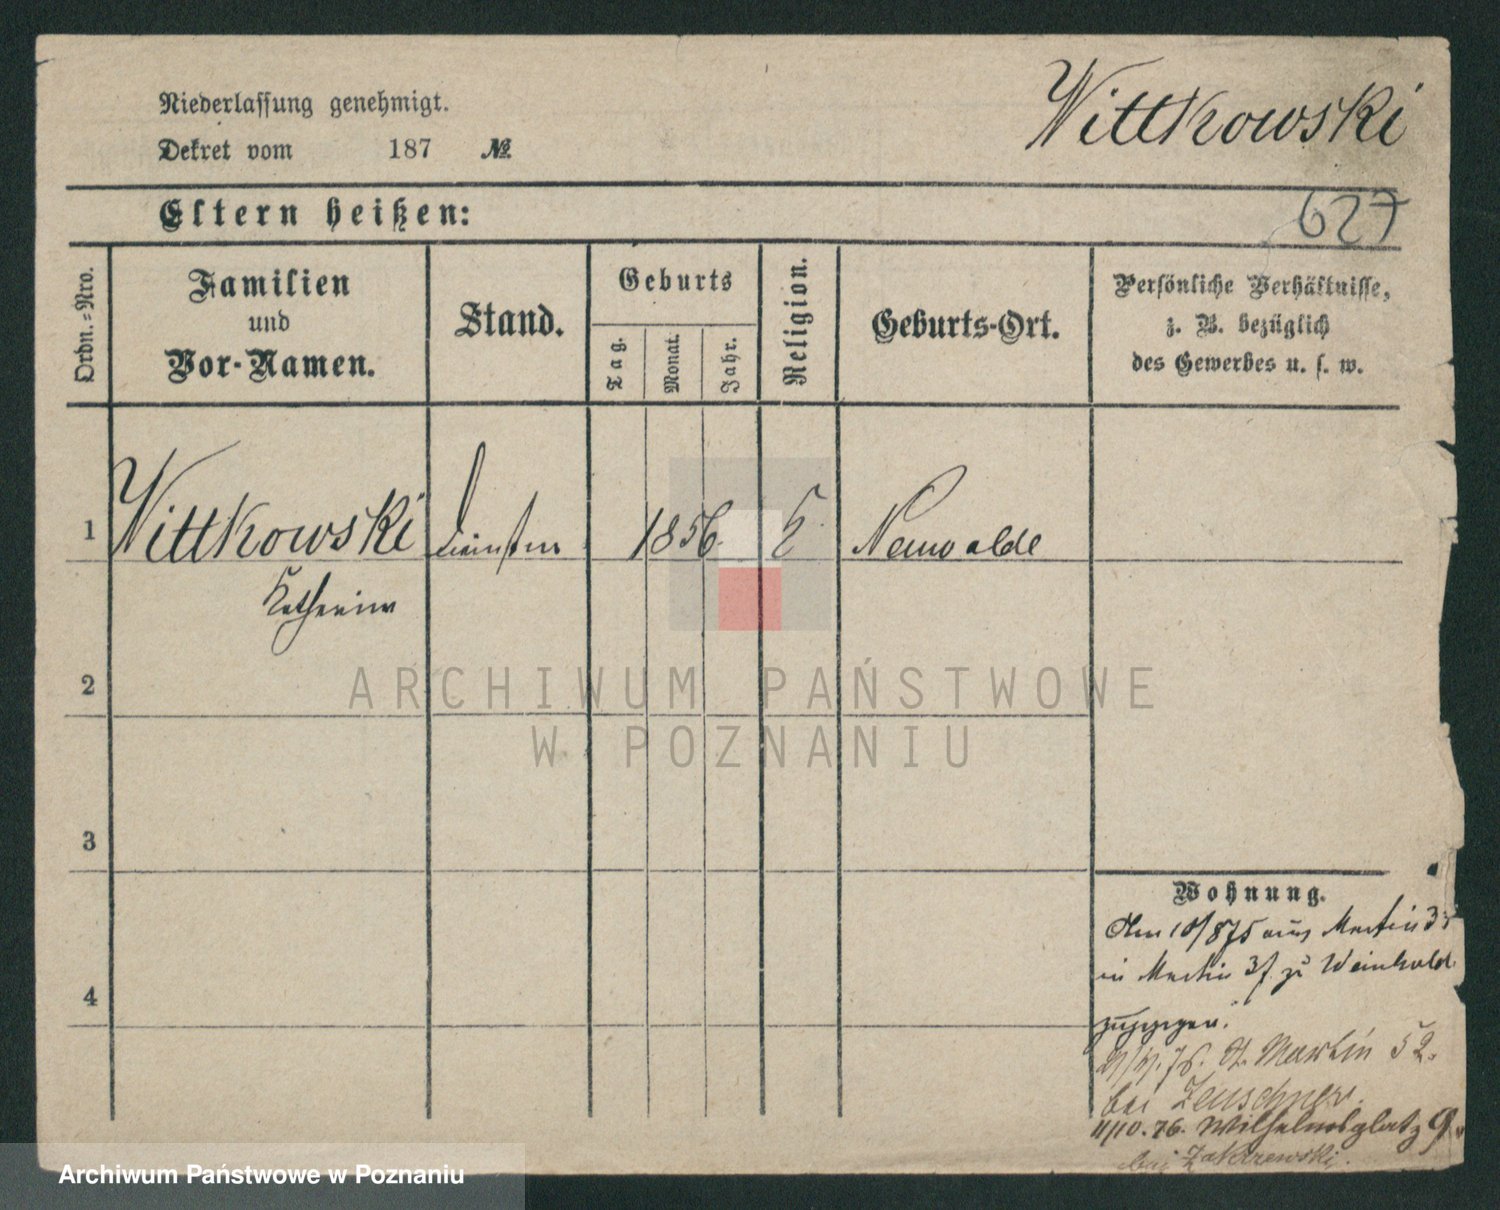 Niederlassung genehmigt.
Dekret vom 187 №
Wittkowski
Eltern heißen:
627
Ordn.=Nro.
Familien
und
Vor-Namen.
Stand.
Geburts
Tag.
Monat.
Jahr.
Religion.
Geburts-Ort.
Persönliche Verhältnisse,
z. B. bezüglich
des Gewerbes u. s. w.
1 Wittkowski 1856 Neuwalde
2
3
4
Wohnung.
aus Martin
in Martin zu
zugezogen.
St. Martin 52.
bei Zeuschner.
11/10.76. Wilhelmsplatz 9.
bei Zakrzewski.
ARCHIWUM PAŃSTWOWE
W POZNANIU
Archiwum Państwowe w Poznaniu